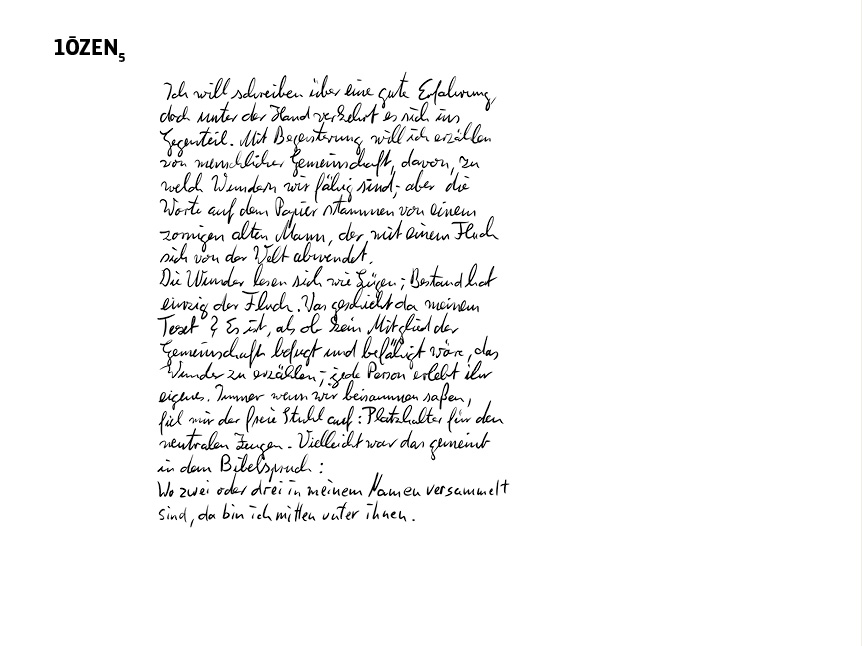 1ŌZEN5
Ich will schreiben über eine gute Erfahrung
doch unter der Hand verkehrt es sich ins
Gegenteil. Mit Begeisterung will ich erzählen
von menschlicher Gemeinschaft, davon, zu
welch Wundern wir fähig sind; aber die
Worte auf dem Papier stammen von einem
zornigen alten Mann, der mit einem Fluch
sich von der Welt abwendet.
Die Wunder lesen sich wie Lügen; Bestand hat
einzig der Fluch. Was geschieht da meinem
Text? Es ist, als ob kein Mitglied der
Gemeinschaft befugt und befähigt wäre, das
Wunder zu erzählen; jede Person erlebt ihr
eigenes. Immer wenn wir beisammen saßen,
fiel mir der freie Stuhl auf: Platzhalter für den
neutralen Zeugen. Vielleicht war das gemeint
in dem Bibelspruch:
Wo zwei oder drei in meinem Namen versammelt
sind, da bin ich mitten unter ihnen.